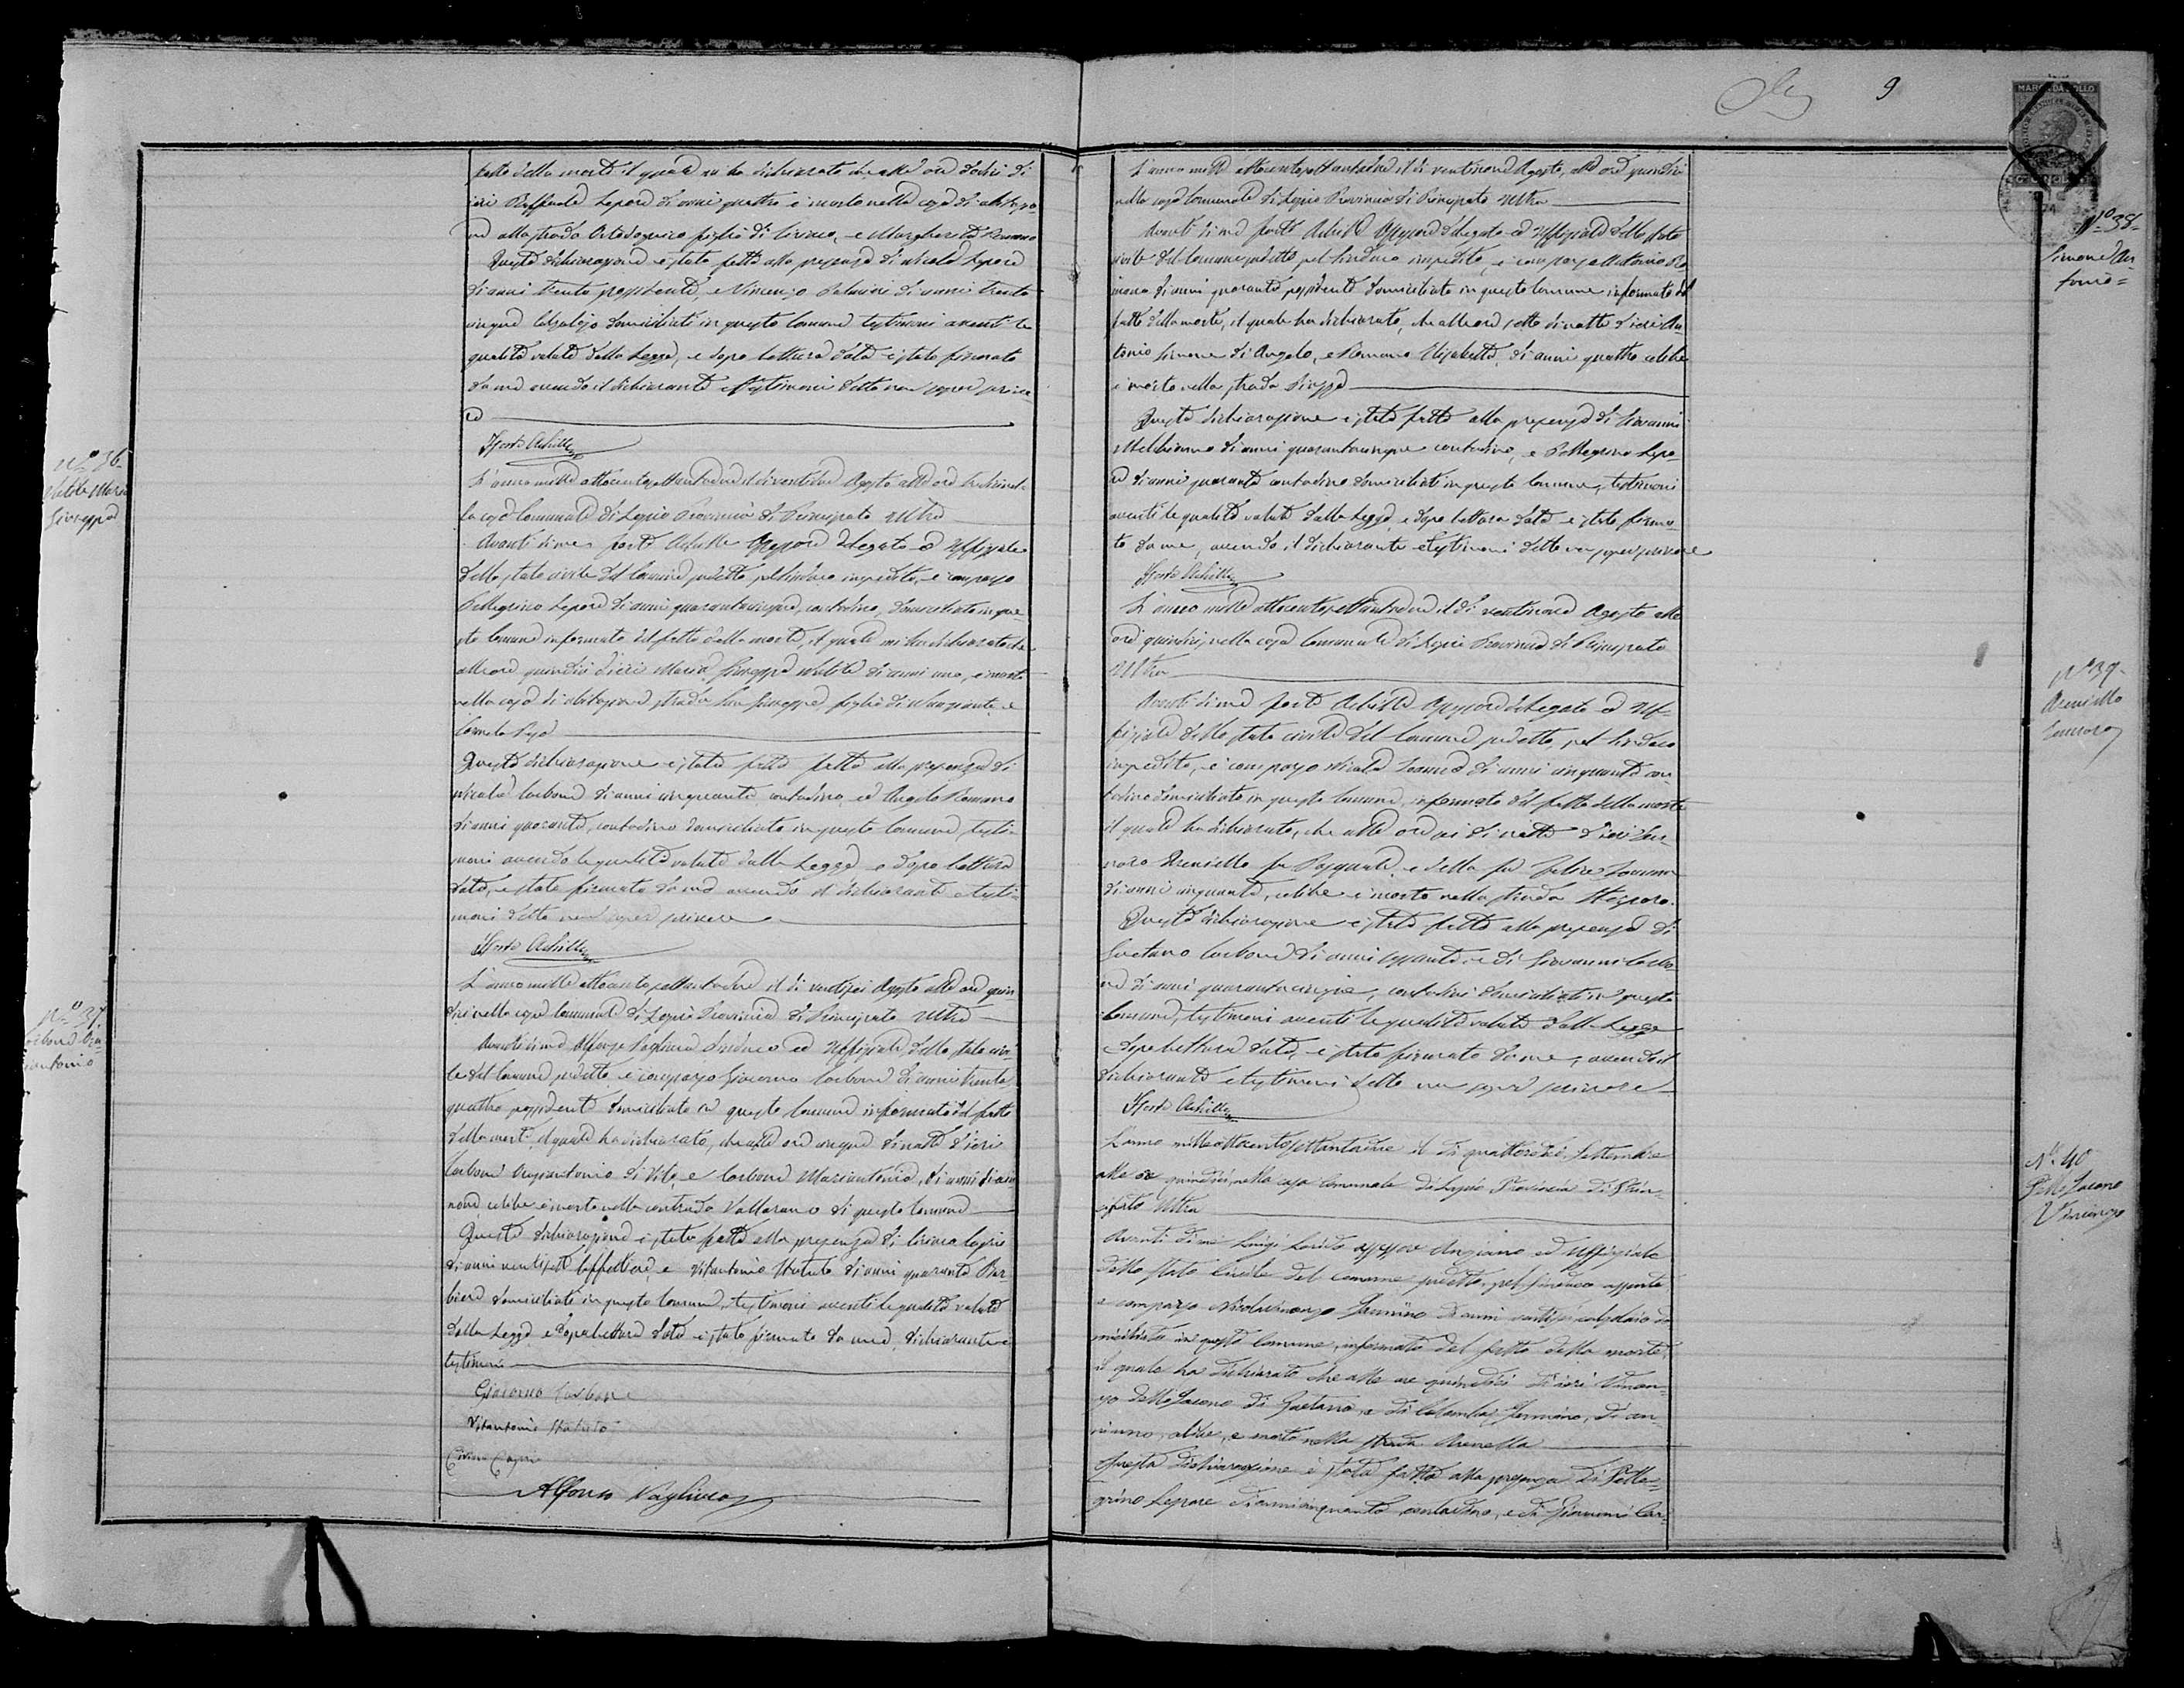 fatto della morte il quale mi ha dichiarato che alle ore dodici di
ieri Raffaele Lepore di anni quattro è morto nella casa di abitazio-
ne alla strada figlio di Ciriaco, e Margherita Romano
Questa dichiarazione è stata fatta alla presenza di Nicola Lepore
di anni trenta possidente, e Vincenzo di anni trenta
cinque calzolajo domiciliati in questo Comune testimoni aventi le
qualità volute dalla Legge, e dopo lettura data è stato firmato
da me avendo il dichiarante e testimoni detto non saper scrive-
re
Forte Achille
N.° 36
Maria
Giuseppa
L'anno mille ottocento settantadue il dì ventidue Agosto alle ore tredici nel-
la casa Comunale di Lapio Provincia di Principato Ultra
Avanti di me Forte Achille Assessore delegato ed Uffiziale
dello stato civile del Comune sudetto, pel Sindaco impedito, è comparso
Pellegrino Lepore di anni quarantacinque, contadino, domiciliato in que-
sto Comune informato del fatto della morte, il quale mi ha dichiarato che
alle ore quindici d'ieri Maria Giuseppa di anni uno, è morta
nella casa di abitazione strada San Giuseppe, figlia di e
Carmela
Questa dichiarazione è stata fatta fatta alla presenza di
Nicola Carbone di anni cinquanta contadino, ed Angelo Romano
di anni quaranta, contadino domiciliato in questo Comune, testi-
moni avendo le qualità volute dalla Legge e dopo lettura
data, è stato firmato da me avendo il dichiarante e testi-
moni detto non saper scrivere
Forte Achille
N.° 37
Carbone
L'anno mille ottocento settantadue il dì ventisei Agosto alle ore quin-
dici nella casa Comunale di Lapio Provincia di Principato Ultra
Avanti di me Alfonso Vagliuca Sindaco ed Uffiziale dello stato civi-
le del Comune sudetto è comparso Giacomo Carbone di anni trenta
quattro possidente domiciliato in questo Comune informato del fatto
della morte il quale ha dichiarato, che alle ore cinque di notte d'ieri
Carbone di Vito, e Carbone Mariantonia, di anni dician-
nove celibe è morto nella contrada Vallarano di questo Comune
Questa dichiarazione è stata fatta alla presenza di Ciriaco
di anni ventisette e Vitantonio di anni quaranta Bar-
biere domiciliati in questo Comune, testimoni aventi le qualità volute
dalla Legge e dopo lettura data è stato firmato da me, dichiarante e
testimoni
Giacomo Carbone
Vitantonio
Ciriaco
Alfonso Vagliuca
9
MARCA DA BOLLO
N.° 38
Simone An-
tonio =
L'anno mille ottocento settantadue il dì ventinove Agosto, alle ore quindici
nella casa Comunale di Lapio Provincia di Principato Ultra
Avanti di me Forte Achille Assessore delegato ed Uffiziale dello stato
civile del Comune sudetto pel Sindaco impedito, è comparso Antonio Ro-
mano di anni quaranta possidente domiciliato in questo Comune informato del
fatto della morte, il quale ha dichiarato, che alle ore sette di notte d'ieri An-
tonio Simone di Angelo, e Romano Elisabetta, di anni quattro celibe
è morto nella strada
Questa dichiarazione è stata fatta alla presenza di Giovanni
di anni quarantacinque contadino, e Pellegrino Lepo-
re di anni quaranta contadino domiciliati in questo Comune, testimoni
aventi le qualità volute dalla Legge, e dopo lettura data è stato firma-
to da me, avendo il dichiarante e testimoni detto non saper scrivere
Forte Achille
N.° 39
Areniello
Gennaro
L'anno mille ottocento settantadue il dì ventinove Agosto alle
ore quindici, nella casa Comunale di Lapio Provincia di Principato
Ultra
Avanti di me Forte Achille Assessore delegato ed Uf-
fiziale dello stato civile del Comune sudetto, pel Sindaco
impedito, è comparso Nicola di anni cinquanta con-
tadino domiciliato in questo Comune, informato del fatto della morte
il quale ha dichiarato, che alle ore sei di notte d'ieri Gen-
naro Areniello fu Pasquale, e della fu Felice
di anni cinquanta, celibe è morto nella strada
Questa dichiarazione è stata fatta alla presenza di
Gaetano Carbone di anni sessanta, e di Giovanni Carbo-
ne di anni quarantacinque, contadini domiciliati in questo
Comune, testimoni aventi le qualità volute dalla Legge
dopo lettura data, è stato firmato da me, avendo il
dichiarante e testimoni detto non saper scrivere
Forte Achille
N.° 40
Dello Iacono
Vincenzo
L'anno milleottocentosettantadue il dì quattordici Settembre
alle ore quindici, nella casa Comunale di Lapio Provincia di Prin-
cipato Ultra
Avanti di me Luigi assessore Anziano ed Uffiziale
dello stato Civile del comune predetto, pel Sindaco assente
è comparso Nicolavincenzo Iannino di anni ventisei calzolaio do-
miciliato in questo Comune, informato del fatto della morte,
il quale ha dichiarato che alle ore quindici di ieri Vincen-
zo Dello Iacono di Gaetano, e di Colomba Iannino, di an-
ni uno, celibe, è morto nella strada Arenella
Questa dichiarazione è stata fatta alla presenza di Pelle-
grino Lepore di anni cinquanta contadino, e di Giovanni Car-